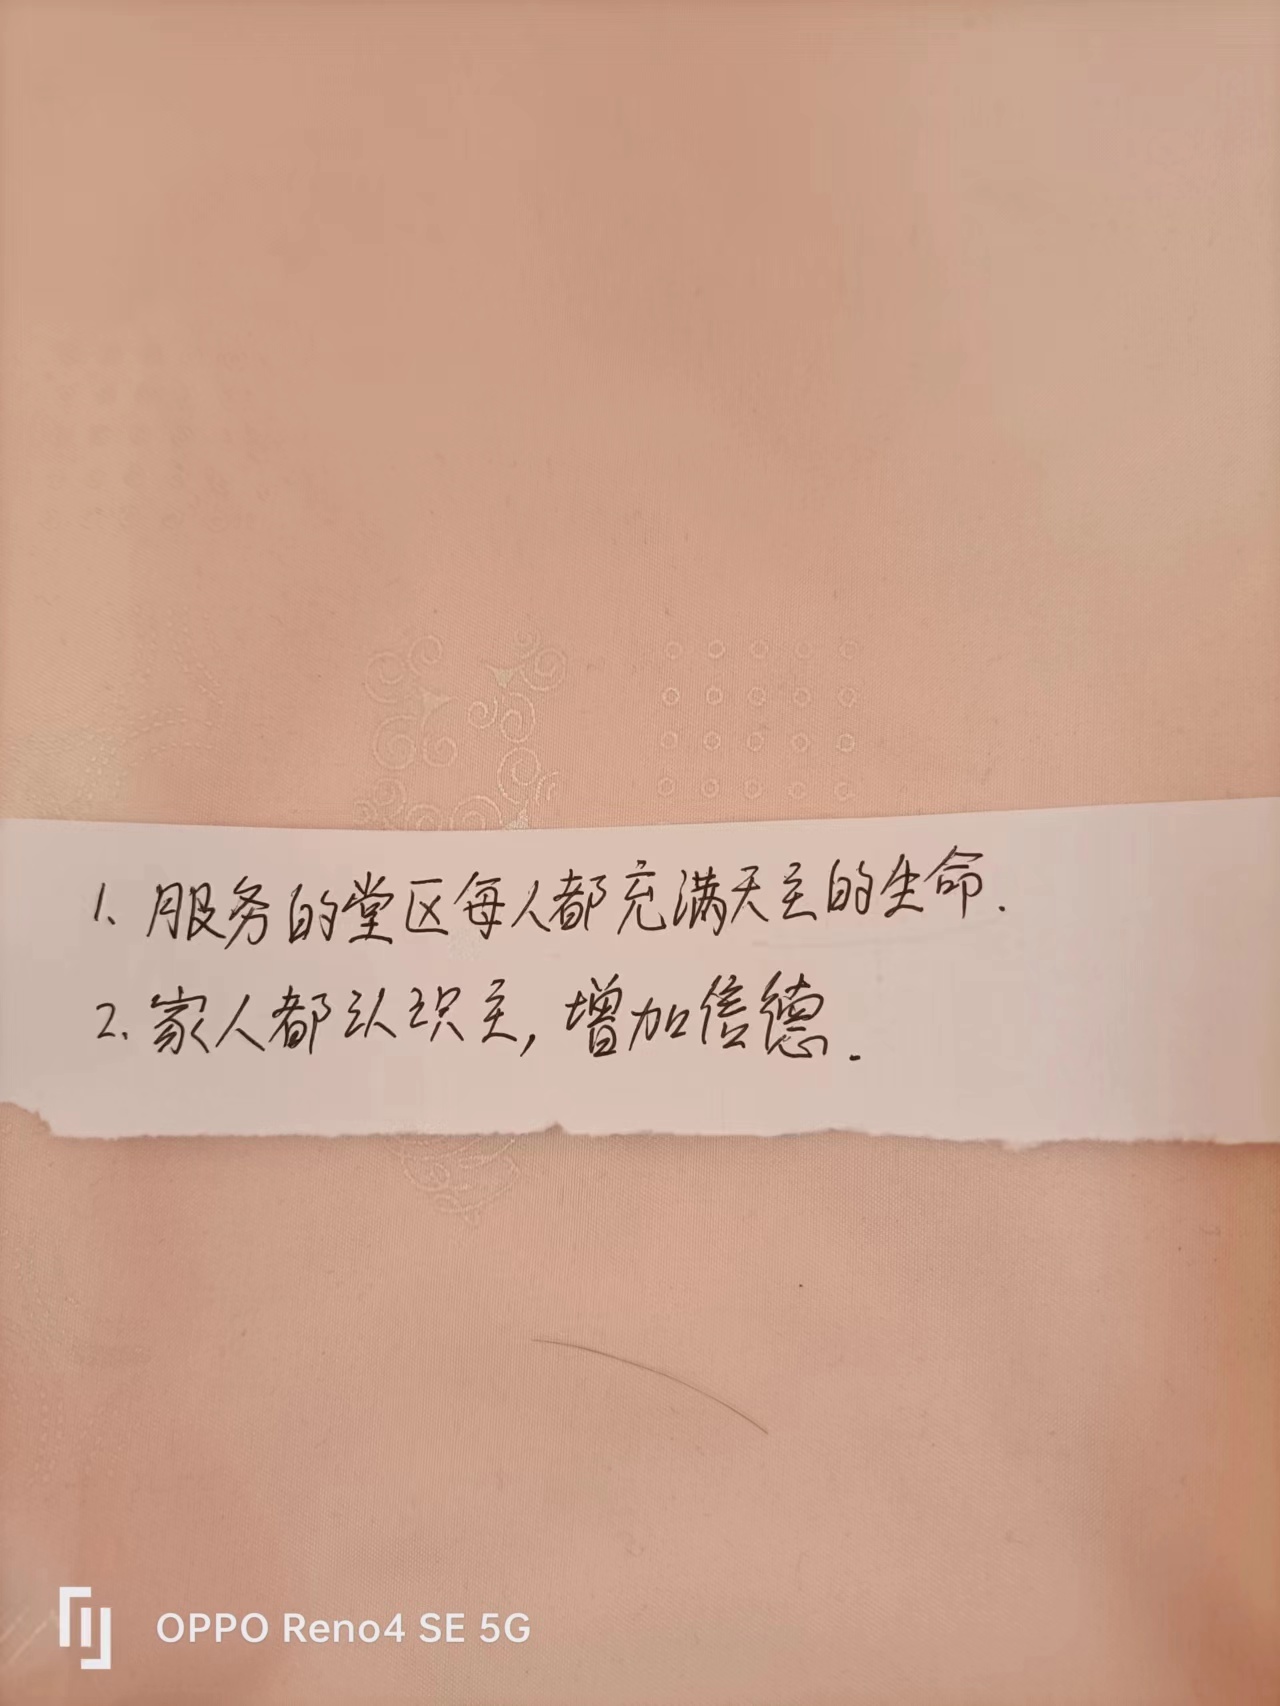 1. 服务的堂区每人都充满天主的生命.
2. 家人都认识主, 增加信德.
OPPO Reno4 SE 5G